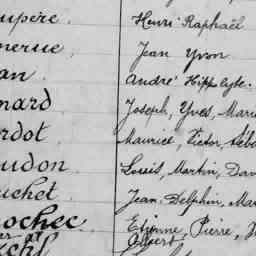 upère. Henri Raphaël
nerue. Jean Yvon
an André Hippolyte.
nard Joseph, Yves, Mari
rdot Maurice, Victor,
udon. Louis, Martin, Dav
uchet Jean Delphin, Ma
ochec Etienne, Pierre,
Albert,